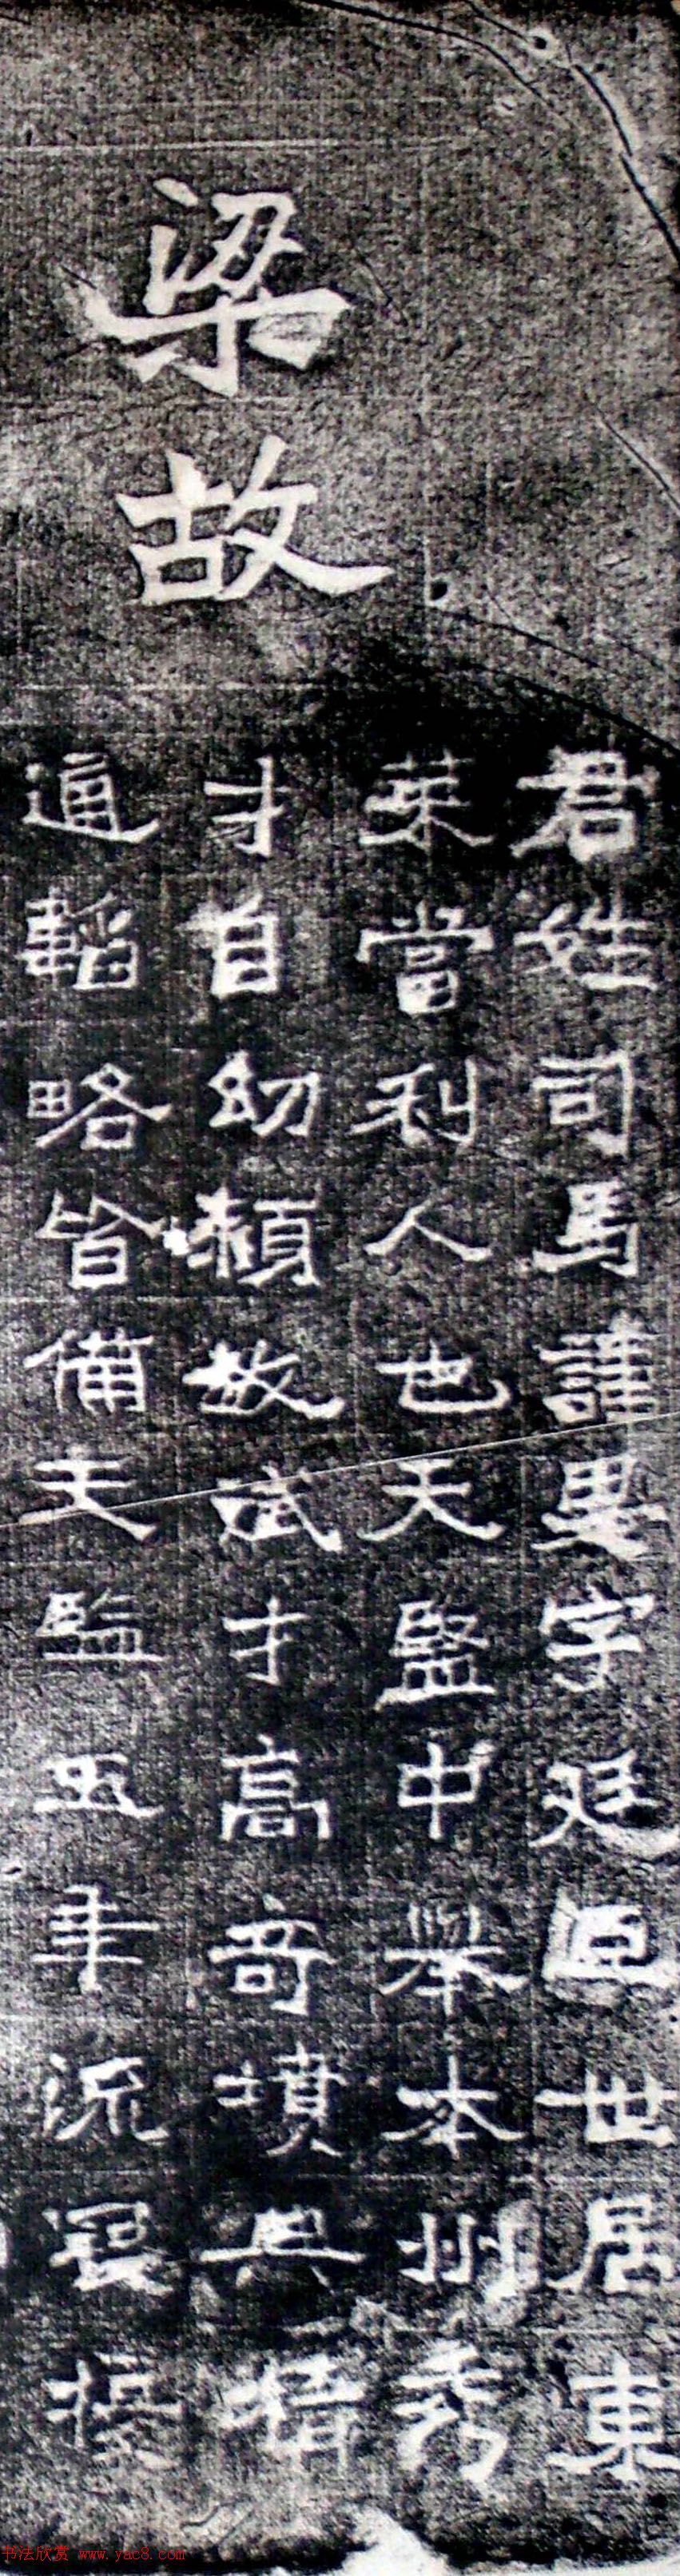 梁故
君姓司馬謹思字廷臣世居東
萊當利人也天監中舉本州秀
才自幼穎故試才高奇墳典精
通韜略皆備天監五年流冦擾
书法欣赏 www.yac8.com